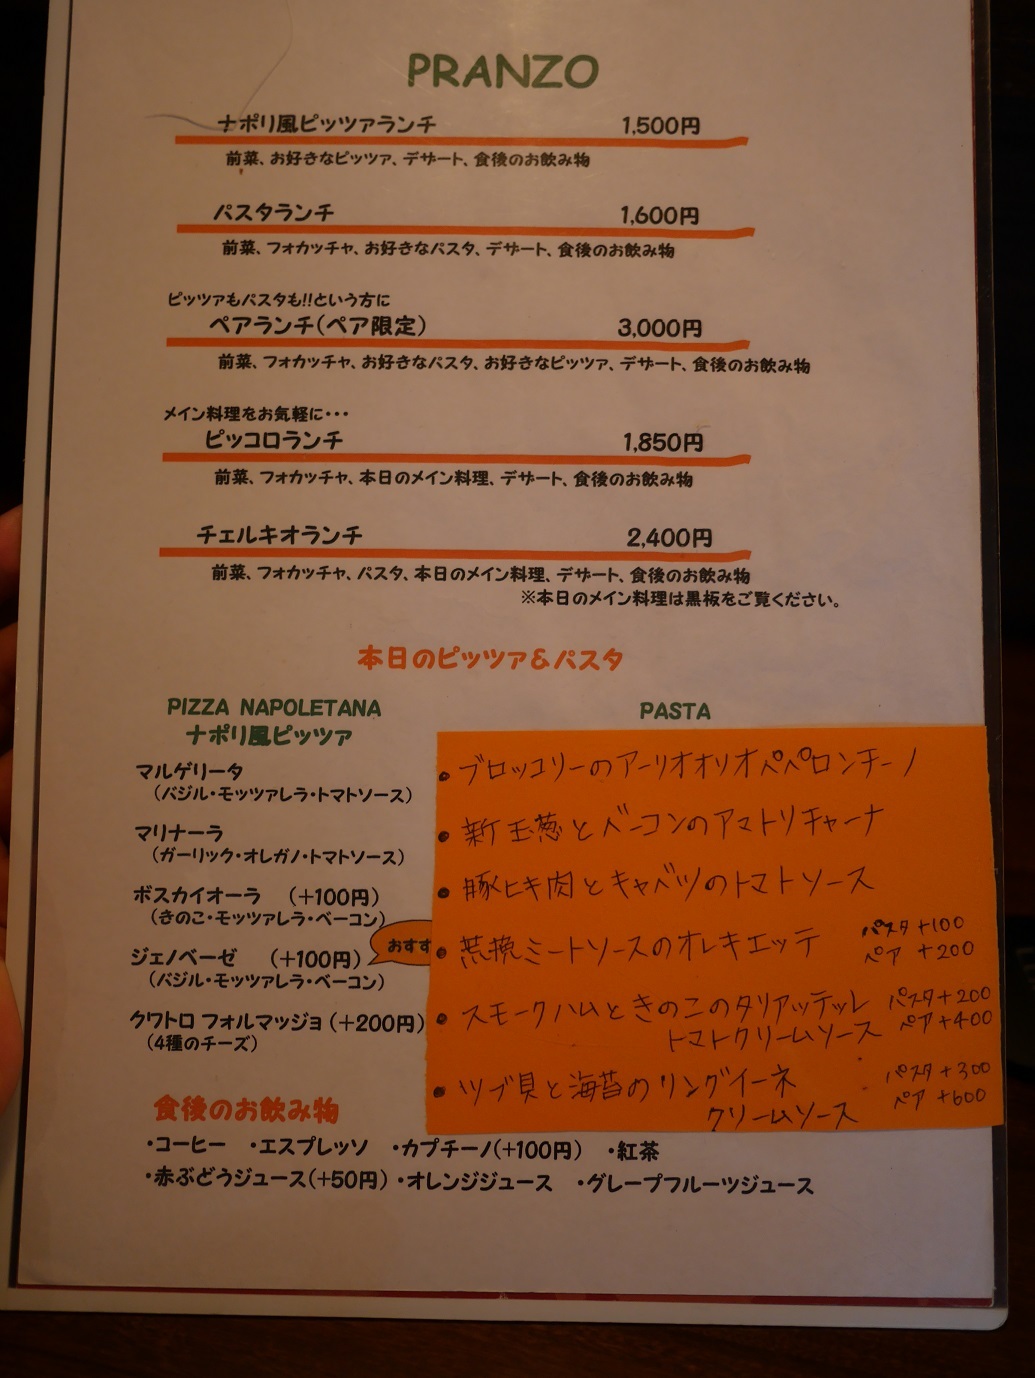 PRANZO
ナポリ風ピッツァランチ 1,500円
前菜、お好きなピッツァ、デザート、食後のお飲み物
パスタランチ 1,600円
前菜、フォカッチャ、お好きなパスタ、デザート、食後のお飲み物
ピッツァもパスタも!!という方に
ペアランチ(ペア限定) 3,000円
前菜、フォカッチャ、お好きなパスタ、お好きなピッツァ、デザート、食後のお飲み物
メイン料理をお気軽に・・・
ピッコロランチ 1,850円
前菜、フォカッチャ、本日のメイン料理、デザート、食後のお飲み物
チェルキオランチ 2,400円
前菜、フォカッチャ、パスタ、本日のメイン料理、デザート、食後のお飲み物
※本日のメイン料理は黒板をご覧ください。
本日のピッツァ&パスタ
PIZZA NAPOLETANA
ナポリ風ピッツァ
マルゲリータ
(バジル・モッツァレラ・トマトソース)
マリナーラ
(ガーリック・オレガノ・トマトソース)
ボスカイオーラ (+100円)
(きのこ・モッツァレラ・ベーコン)
ジェノベーゼ (+100円)
おすす
(バジル・モッツァレラ・ベーコン)
クワトロ フォルマッジョ (+200円)
(4種のチーズ)
PASTA
・ブロッコリーのアーリオオリオペペロンチーノ
・新玉葱とベーコンのアマトリチャーナ
・豚ヒキ肉とキャベツのトマトソース
・荒挽ミートソースのオレキエッテ パスタ+100
ペア +200
・スモークハムときのこのタリアッテッレ パスタ+200
トマトクリームソース ペア+400
・ツブ貝と海苔のリングイーネ パスタ+300
クリームソース ペア +600
食後のお飲み物
・コーヒー ・エスプレッソ ・カプチーノ(+100円) ・紅茶
・赤ぶどうジュース(+50円) ・オレンジジュース ・グレープフルーツジュース